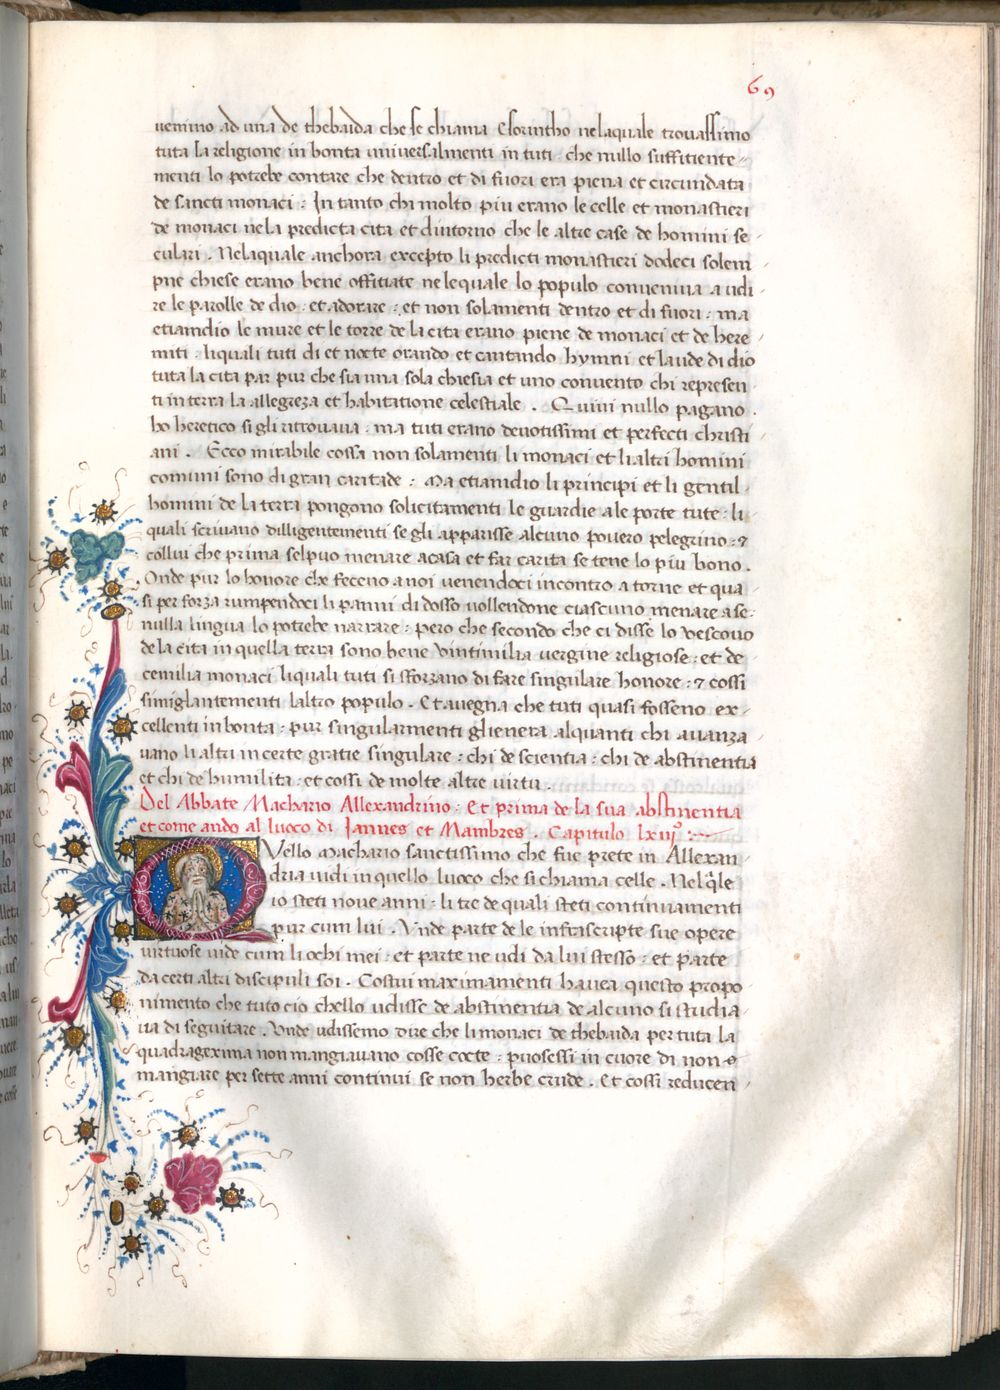 69
uenimo ad una de thebaida che se chiama Osorintho nelaquale trouassimo
tuta la religione in bonta uniuersalmenti in tuti · che nullo suffitiente
menti lo potrebe contare che dentro et di fuori era piena et circundata
de sancti monaci : In tanto chi molto piu erano le celle et monastieri
de monaci ne la predicta cita et dintorno che le altre case de homini se
culari . Nelaquale anchora excepto li predicti monastieri dodeci solem
pne chiese erano bene offitiate nelequale lo populo conueniua a udi
re le parolle de dio : et adorare : et non solamenti dentro et di fuori : ma
etiamdio le mure et le torre de la cita erano piene de monaci et de here
miti : liquali tuti di et nocte orando et cantando hymni et laude di dio
tuta la cita par pur che sia una sola chiesia et uno conuento chi represen
ti in terra la allegreza et habitatione celestiale . Quiui nullo pagano .
ho heretico si gli ritrouaua : ma tuti erano deuotissimi et perfecti christi
ani . Ecco mirabile cossa non solamenti li monaci et li altri homini
comuni sono di gran caritade : Ma etiamdio li principi et li gentil
homini de la terra pongono solicitamenti le guardie ale porte tute : li
quali scriuano dilligentementi se gli apparisse alcuno pouero pelegrino : &
collui che prima sel puo menare acasa et far carita se tene lo piu bono .
Onde pur lo honore che feceno a noi uenendoci incontro a torne et qua
si per forza rumpendoci li panni di dosso uollendone ciascuno menare a se :
nulla lingua lo potrebe narrare : pero che secondo che ci disse lo Vescouo
de la cita in quella terra sono bene Vintimilia uergine religiose : et de
cemilia monaci liquali tuti si sforzano di fare singulare honore : & cossi
simiglantementi laltro populo . Et auegna che tuti quasi fosseno ex
cellenti in bonta : pur singularmenti glienera alquanti chi auanza
uano li altri in certe gratie singulare : chi de scientia : chi de abstinentia
et chi de humilita : et cossi de molte altre uirtu .
Del Abbate Machario Allexandrino : Et prima de la sua abstinentia
et come ando al luoco di Iannes et Mambres . Capitulo lxiiij°
Vello Machario sanctissimo che fue prete in Allexan
dria uidi in quello luoco che si chiama celle . Nel q̃le
io steti noue anni : li tre de quali steti continuamenti
pur cum lui . Vnde parte de le infrascripte sue opere
uirtuose uide cum li ochi mei : et parte ne udi da lui stesso : et parte
da certi altri discipuli soi . Costui maximamenti haueа questo propo
nimento che tuto cio chello udisse de abstinentia de alcuno si studia
ua di seguitare . Vnde udissemo dire che li monaci de thebaida per tuta la
quadragexima non mangiauano cosse cocte : puosessi in cuore di non
mangiare per sette anni continui se non herbe crude . Et cossi reducen